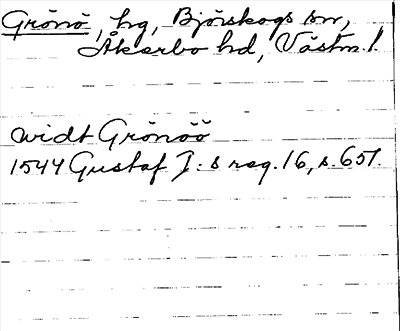 Grönö, hg, Björskogs sn,
Åkerbo hd, Västm. l.
widt Grönöö
1544 Gustaf I:s reg. 16, s. 657.